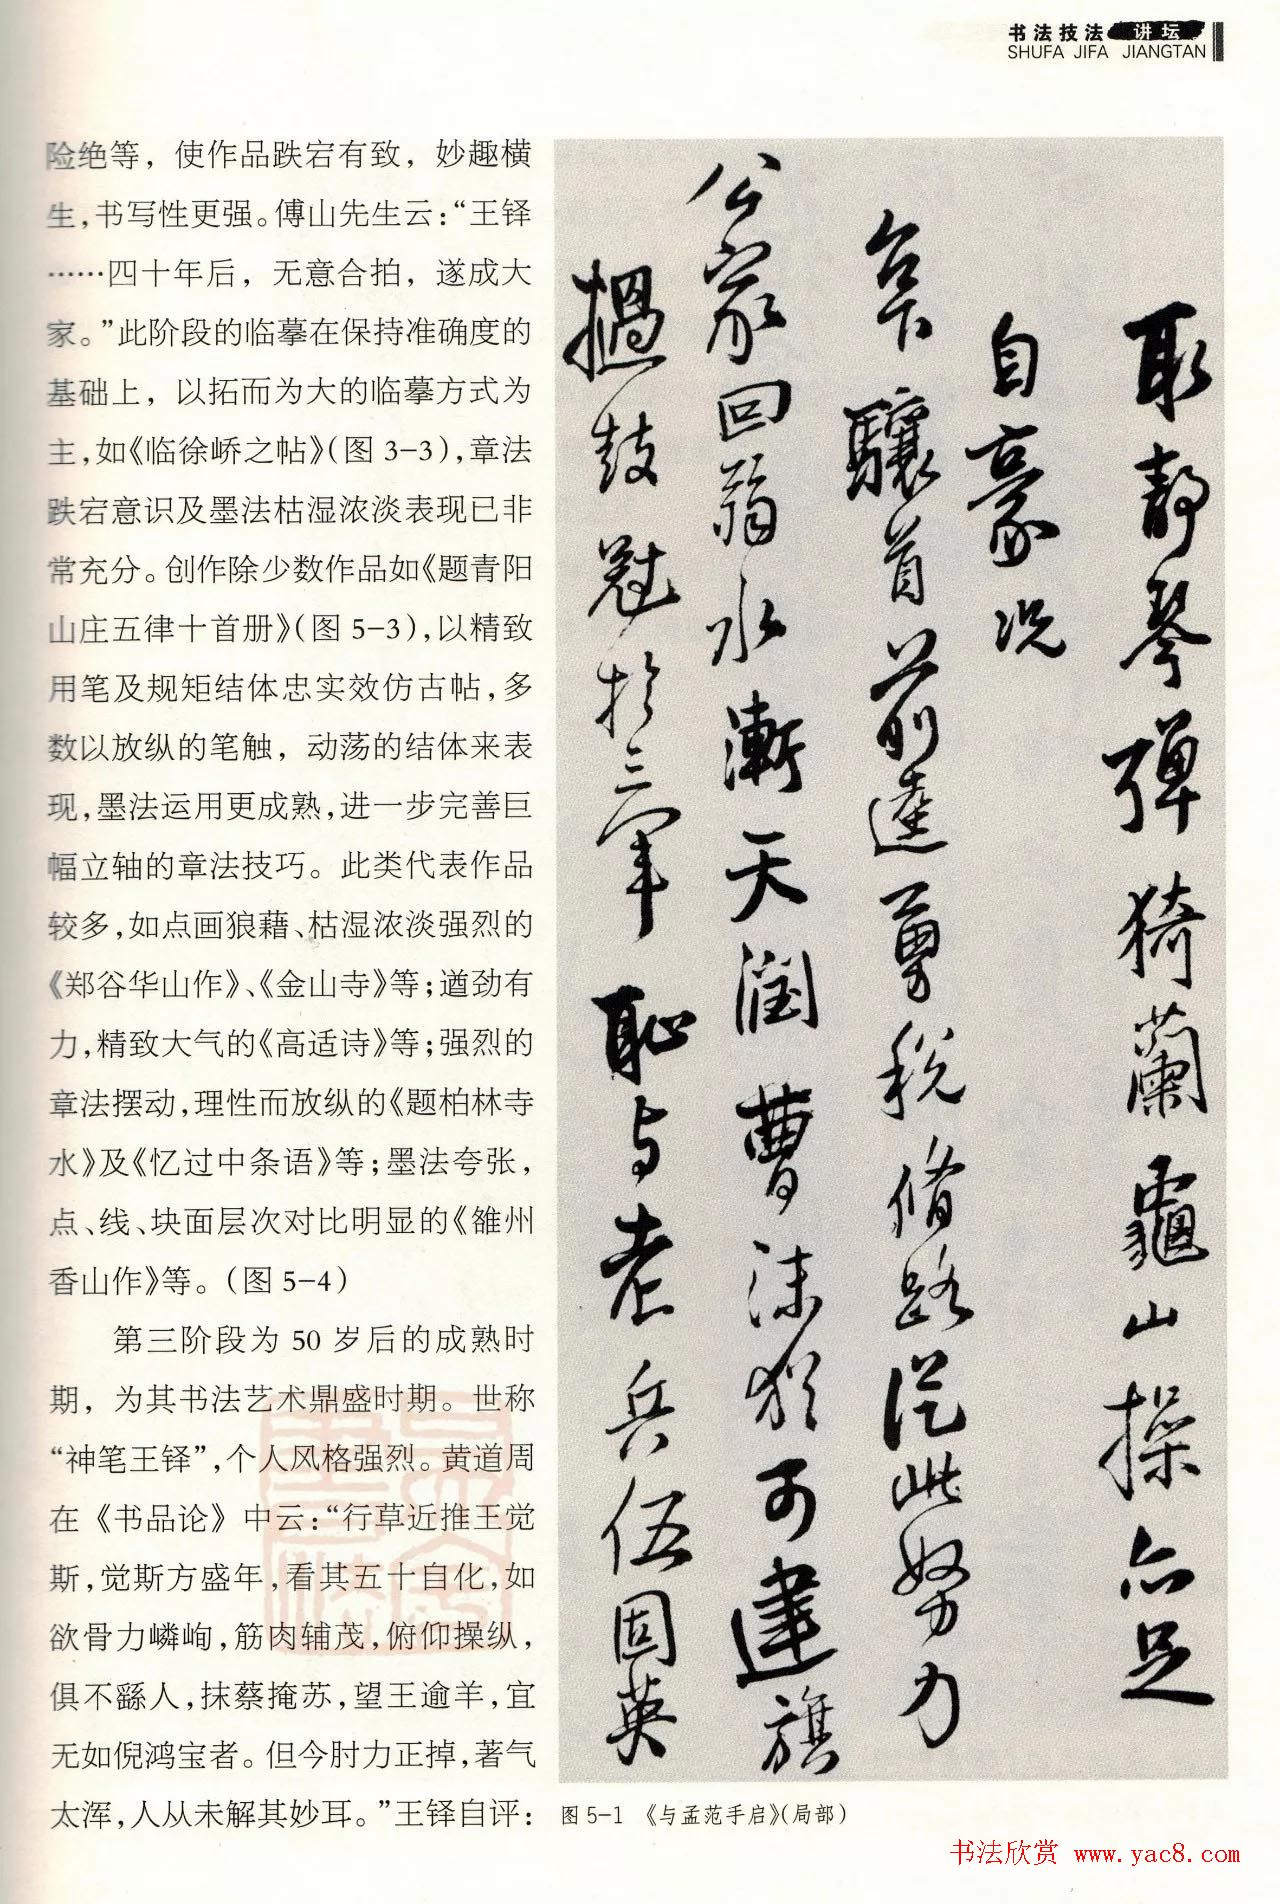 书法技法 讲坛
SHUFA JIFA JIANGTAN
险绝等，使作品跌宕有致，妙趣横
生，书写性更强。傅山先生云：“王铎
……四十年后，无意合拍，遂成大
家。”此阶段的临摹在保持准确度的
基础上，以拓而为大的临摹方式为
主，如《临徐峤之帖》（图 3-3），章法
跌宕意识及墨法枯湿浓淡表现已非
常充分。创作除少数作品如《题青阳
山庄五律十首册》（图 5-3），以精致
用笔及规矩结体忠实效仿古帖，多
数以放纵的笔触，动荡的结体来表
现，墨法运用更成熟，进一步完善巨
幅立轴的章法技巧。此类代表作品
较多，如点画狼藉、枯湿浓淡强烈的
《郑谷华山作》、《金山寺》等；遒劲有
力，精致大气的《高适诗》等；强烈的
章法摆动，理性而放纵的《题柏林寺
水》及《忆过中条语》等；墨法夸张，
点、线、块面层次对比明显的《雒州
香山作》等。（图 5-4）
第三阶段为 50 岁后的成熟时
期，为其书法艺术鼎盛时期。世称
“神笔王铎”，个人风格强烈。黄道周
在《书品论》中云：“行草近推王觉
斯，觉斯方盛年，看其五十自化，如
欲骨力嶙峋，筋肉辅茂，俯仰操纵，
俱不繇人，抹蔡掩苏，望王逾羊，宜
无如倪鸿宝者。但今肘力正掉，著气
太浑，人从未解其妙耳。”王铎自评：
取静琴弹猗蘭龜山操亦足
自豪况
年下驤首前達勇税脩路從此努力
公家回翁水漸天潤曹沫猶可建旗
撾鼓冠於三軍恥与老兵伍固英
图 5-1 《与孟范手启》（局部）
书法欣赏 www.yac8.com